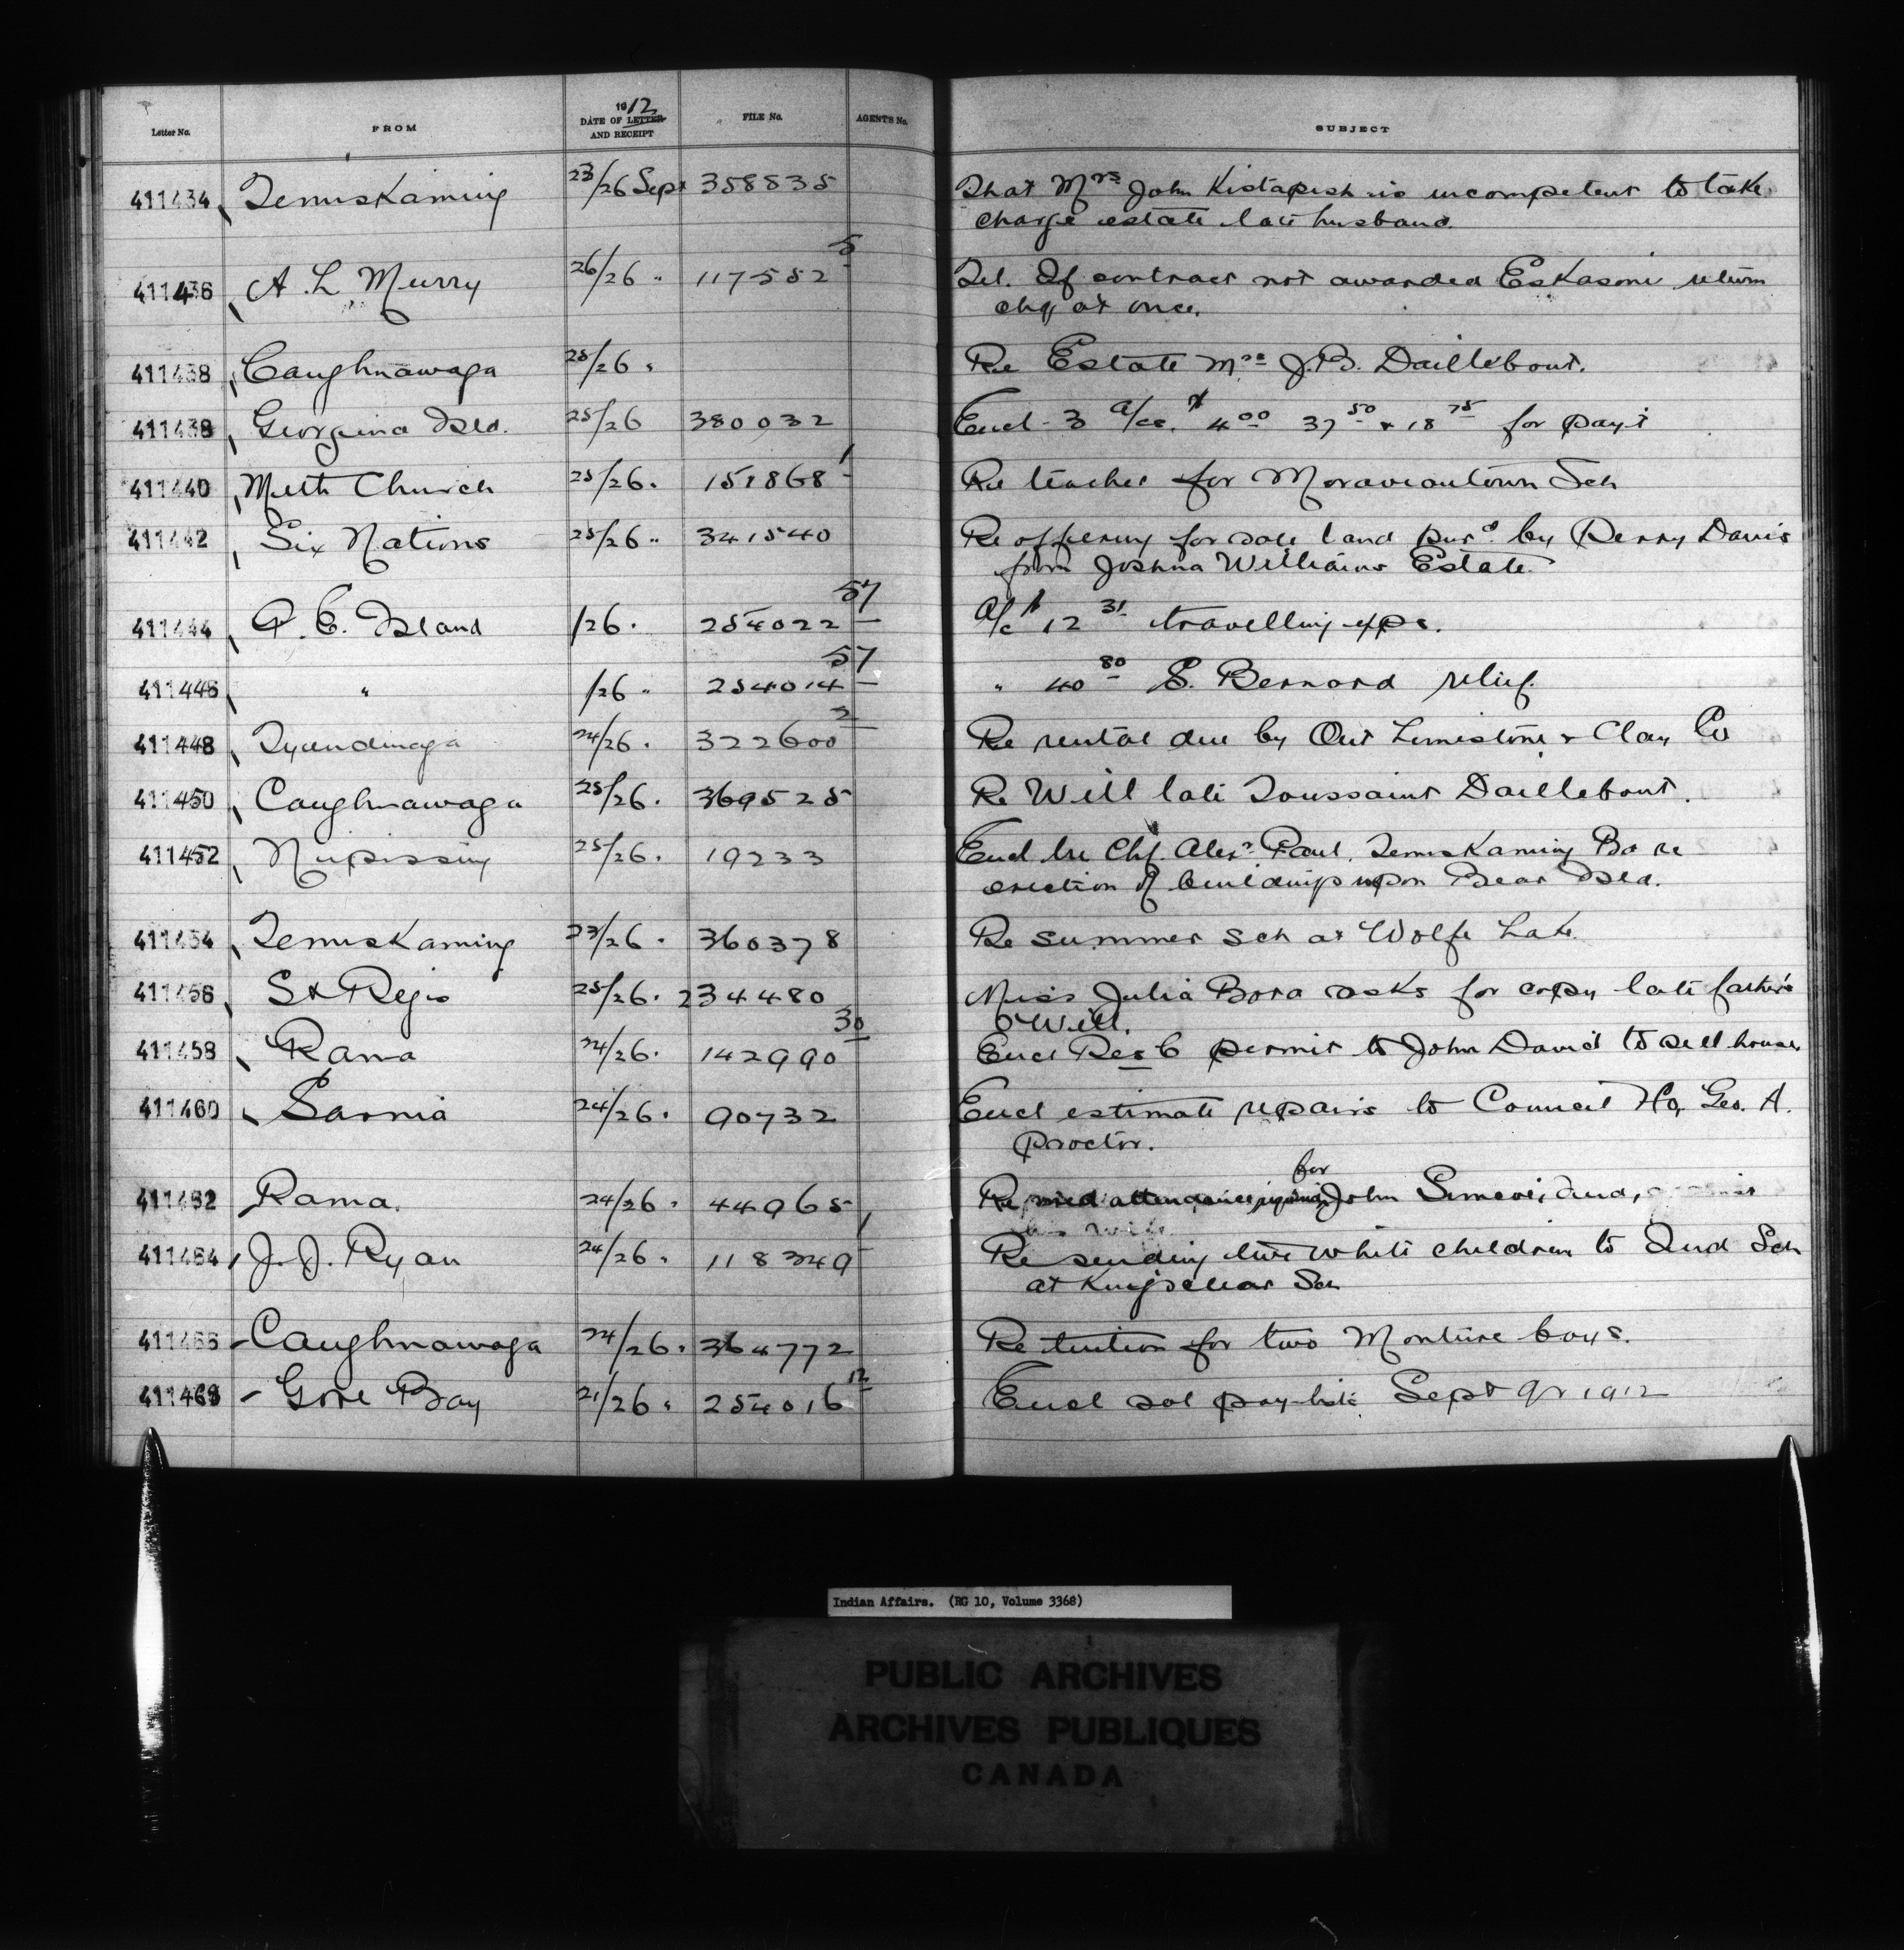 Letter No. FROM 1912 DATE OF LETTER AND RECEIPT FILE No. AGENT'S No. SUBJECT
411434 Temiskaming 23/26 Sept 358835 That Mrs John Kistapish is incompetent to take
charge estate late husband.
411436 A. L Murry 26/26 " 117552 5 Tel. If contract not awarded Eskasoni return
chq at once.
411438 Caughnawaga 25/26 " Re Estate Mrs J.B. Daillebout.
411438 Georgina Isld. 25/26 380032 Encl 3 a/cs. $4.00 37.50 & 18.75 for pay't
411440 Meth Church 25/26 " 151868 1 Re teacher for Moraviantown Sch
411442 Six Nations 25/26 " 341540 Re offering for sale land purd by Perry Davis
from Joshua Williams Estate.
411444 P. E. Island /26 " 254022 57 A/c $12.31 travelling exps.
411446 " /26 " 254014 57 " 40.80 S. Bernard relief.
411448 Tyendinaga 24/26 " 322600 2 Re rental due by Ont Limestone & Clay Co
411450 Caughnawaga 25/26 " 369525 Re Will late Toussaint Daillebout.
411452 Nipissing 25/26 " 19233 Encl ltr Chf. Alexr Paul, Temiskaming Ba re
erection of buildings upon Bear Isld.
411454 Temiskaming 23/26 " 360378 Re summer sch at Wolfe Lake
411456 St Regis 25/26 " 234480 Miss Julia Bova asks for copy late father's
Will.
411458 Rama 24/26 " 142990 30 Encl Res C permit to John David to sell house.
411460 Sarnia 24/26 " 90732 Encl estimate repairs to Council Ho, Geo. A.
Proctor.
for
411462 Rama. 24/26 " 44965 Re med attendance John Simcoe, Ind,
his wife
411464 J. J. Ryan 24/26 " 118349 1 Re sending two white children to Ind Sch
at Kingsclear Sch
411466 Caughnawaga 24/26 " 364772 Re tuition for two Monture boys.
411468 Gore Bay 21/26 " 254016 12 Encl sal pay-list Sept qr 1912
Indian Affairs. (RG 10, Volume 3368)
PUBLIC ARCHIVES
ARCHIVES PUBLIQUES
CANADA